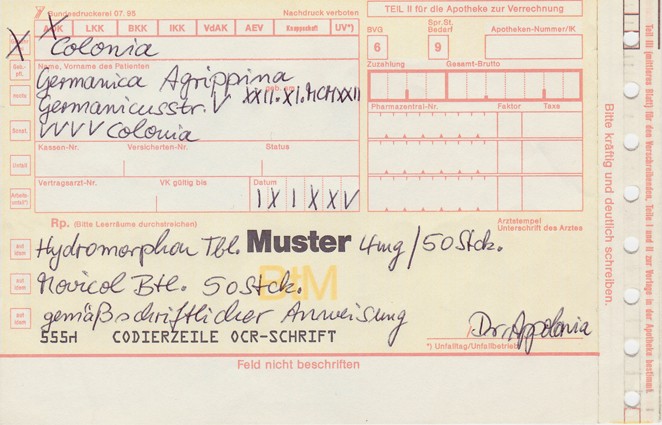 Bundesdruckerei 07.95 Nachdruck verboten
TEIL II für die Apotheke zur Verrechnung
AOK LKK BKK IKK VdAK AEV Knappschaft UV*)
X X Colonia
BVG 6
Spr.St. Bedarf 9
Apotheken-Nummer/IK
Zuzahlung Gesamt-Brutto
Name, Vorname des Patienten
geb. am
Germanica Agrippina
Germanicusstr. V XXII.XI.MCMXXII
VVVV Colonia
Pharmazentral-Nr. Faktor Taxe
Kassen-Nr. Versicherten-Nr. Status
Vertragsarzt-Nr. VK gültig bis Datum
IXIXXV
Rp. (Bitte Leerräume durchstreichen)
Arztstempel
Unterschrift des Arztes
aut idem
Hydromorphon Tbl. Muster 4mg/50 Stck.
aut idem
Movicol Btl. 50 Stck.
BtM
aut idem
gemäß schriftlicher Anweisung
Dr. Appolonia
555H CODIERZEILE OCR-SCHRIFT
*) Unfalltag/Unfallbetrieb
Feld nicht beschriften
Bitte kräftig und deutlich schreiben.
Teil III (mittleres Blatt) für den Verschreibenden, Teile I und II zur Vorlage in der Apotheke bestimmt.